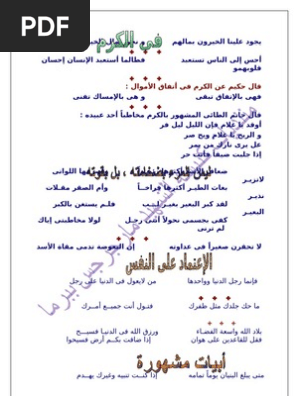 PDF
فى الكرم
يجود علينا الخيرون بمالهم
أحسن إلى الناس تستعبد قلوبهمو
فطالما أستعبد الإنسان إحسان
قال حكيم عن الكرم فى أنفاق الأموال :
فهى بالإنفاق تبقى و هى بالإمساك تفنى
قال حاتم الطائى المشهور بالكرم مخاطباً أحد عبيده :
أوقد يا غلام فإن الليل ليل قر
و الريح يا غلام ريح صر
عل يرى نارك من يمر
إذا جلبت ضيفاً فأنت حر
ليس المرء بضخامته ، بل بقوته
بغاث الطير أكثرها فراخاً وأم الصقر مقلات نذير
لقد كبر البعير بغير لب فلم يستغن بالكبر البعير
كفى بجسمى نحولاً أننى رجل لولا مخاطبتى إياك لم ترنى
لا تحقرن صغيراً فى عداوته إن البعوضة تدمى مقلة الأسد
الإعتماد على النفس
فإنما رجل الدنيا وواحدها من لايعول فى الدنيا على رجل
ما حك جلدك مثل ظفرك فتول أنت جميع أمرك
بلاد الله واسعة الفضاء ورزق الله فى الدنيا فسيح
فقل للقاعدين على هوان إذا ضاقت بكم أرض فسيحوا
أبيات مشهورة
متى يبلغ البنيان يوماً تمامه إذا كنت تبنيه وغيرك يهدم